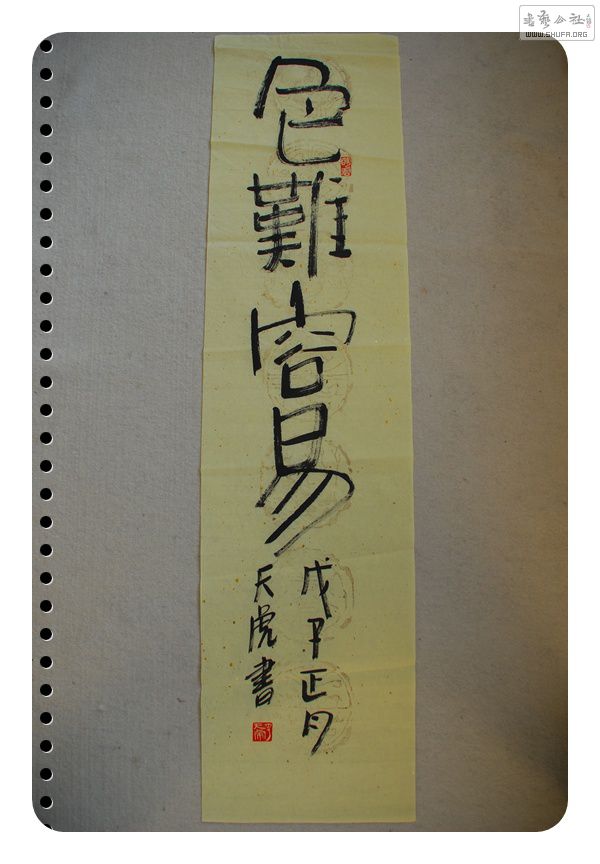 色難容易
戊子正月
天虎書
書藝公社
WWW.SHUFA.ORG